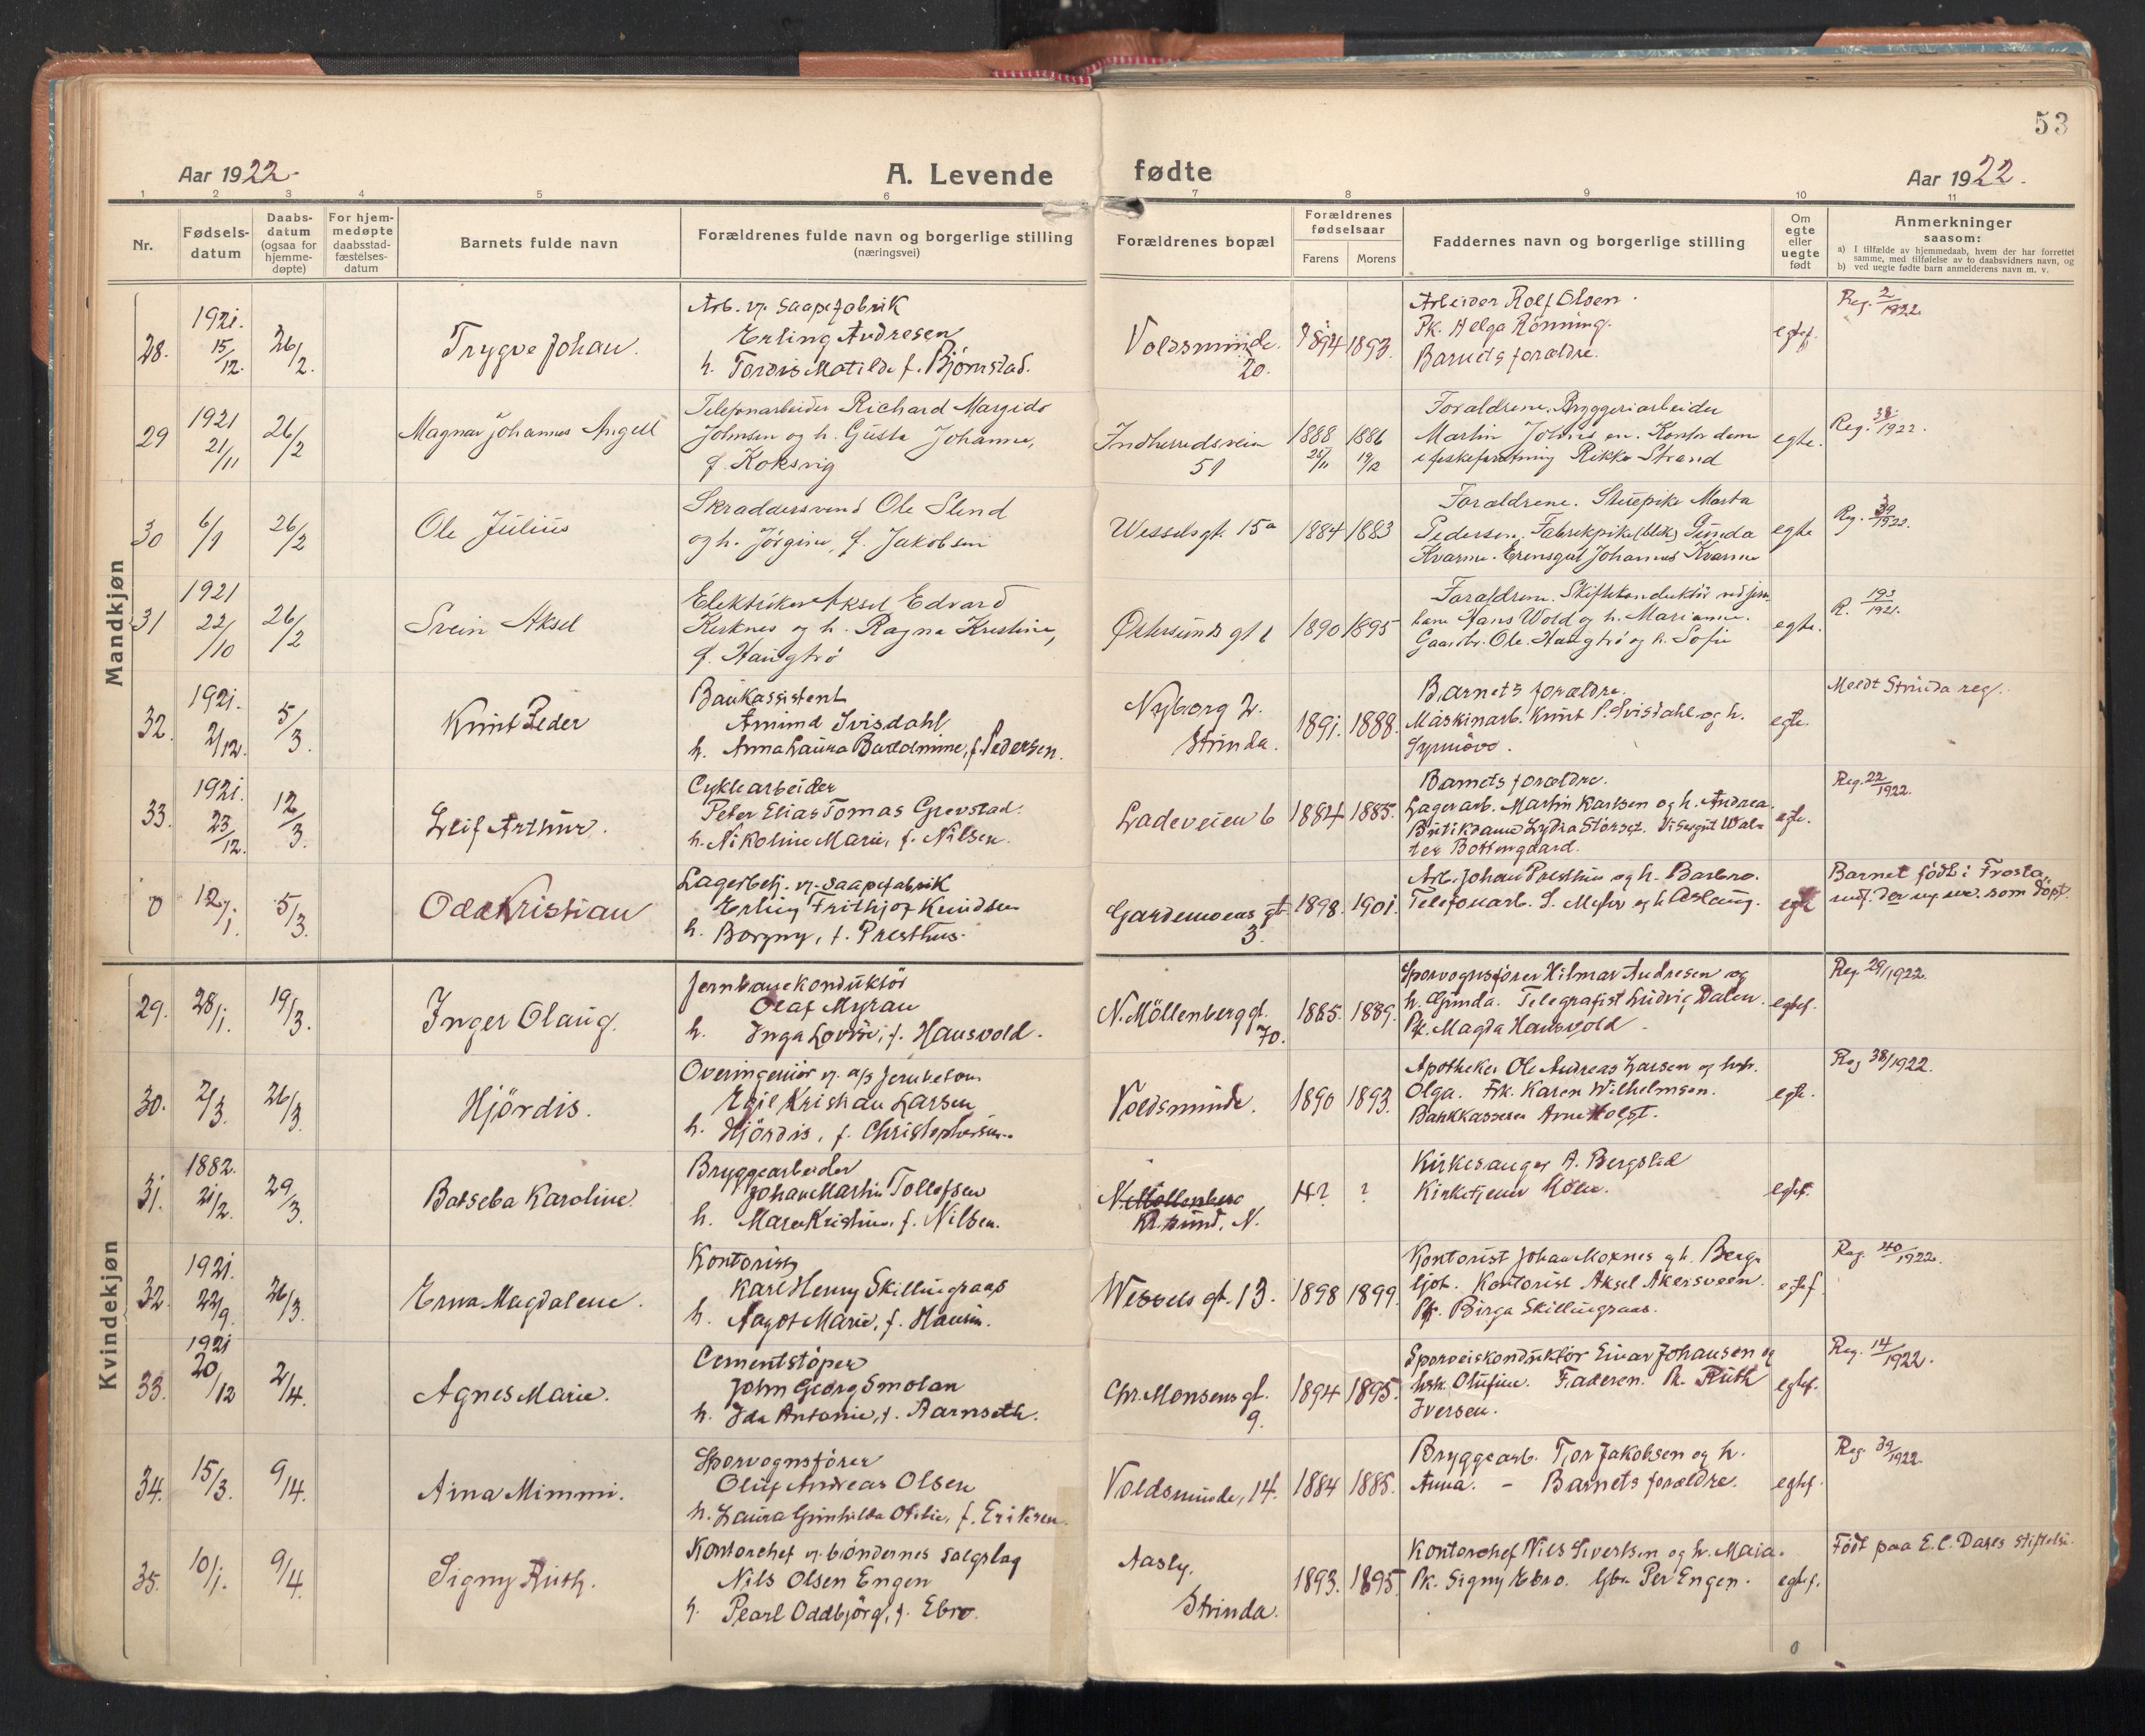 53
Aar 1922.
A. Levende
fødte
Aar 1922.
1 2 3 4 5 6 7 8 9 10 11
Nr.
Fødsels-
datum
Daabs-
datum
(ogsaa for
hjemme-
døpte)
For hjem-
medøpte
daabsstad-
fæstelses-
datum
Barnets fulde navn
Forældrenes fulde navn og borgerlige stilling
(næringsvei)
Forældrenes bopæl
Forældrenes
fødselsaar
Farens Morens
Faddernes navn og borgerlige stilling
Om
egte
eller
uegte
født
Anmerkninger
saasom:
a) I tilfælde av hjemmedaab, hvem der har forrettet
samme, med tilføielse av to daabsvidners navn, og
b) ved uegte fødte barn anmelderens navn m. v.
Mandkjøn
28.
1921.
15/12.
26/2.
Trygve Johan.
Arb. v. Saapefabrik
Erling Andresen
h. Tordis Matilde f. Bjørnstad.
Voldsminde.
20.
1894 1893.
Arbeider Rolf Olsen.
Pk. Helga Rønning.
Barnets forældre.
egtef.
Reg. 2/1922.
29
1921
21/11
26/2
Magnar Johannes Angell
Telefonarbeider Richard Margido
Johnsen og h. Gusta Johanne,
f. Koksvig
Indherredsveien
51
1888 1886
25/11 19/12
Forældrene. Bryggeriarbeider
Martin Johnsen. Kontordame
i fiskeforretning Rikke Strand
egte.
Reg. 38/1922.
30
6/1
26/2
Ole Julius
Skræddersvend Ole Slend
og h. Jørgine, f. Jakobsen
Wesselsgt. 15a
1884 1883
Forældrene. Stuepike Marta
Pedersen. Fabrikpike (blik) Gunda
Kvarme. Erensgut Johannes Kvarme
egte
Reg. 39/1922.
31
1921
22/10
26/2
Svein Aksel
Elektriker Aksel Edvard
Kirknes og h. Ragna Kristine,
f. Haugtrø
Østersunds gt 1
1890 1895
Forældrene. Skiftekonduktør ved jern-
bane Hans Wold og h. Marianne.
Gaardbr. Ole Haugtrø og h. Sofie
egte.
R. 193/1921.
32.
1921.
2/12.
5/3.
Knut Peder
Bankassistent
Amund Svisdahl
h. Anna Laura Baroldmine, f. Pedersen.
Nyborg 2.
Strinda.
1891. 1888.
Barnets forældre.
Maskinarb. Knut P. Svisdahl og h.
Synnøve.
egte.
Meldt Strinda reg.
33.
1921.
23/12.
12/3.
Leif Arthur.
Cyklearbeider
Peter Elias Tomas Grevstad.
h. Nikoline Marie, f. Nilsen.
Ladeveien 6
1884 1885.
Barnets forældre.
Lagerarb. Martin Karlsen og h. Andrea.
Butikdame Lydia Størset. Visergut Wal-
ter Bottengaard.
egte.
Reg. 22/1922.
0
12/1.
5/3.
Odd Kristian
Lagerbetj. v. Saapefabrik
Erling Frithjof Knudsen
h. Borgny, f. Presthus.
Gardemoens gt.
3.
1898. 1901.
Arb. Johan Presthus og h. Barbro.
Telefonarb. S. Myhr og h. Aslaug.
egte
Barnet født i Frosta,
Kvindekjøn
29.
28/1.
19/3.
Inger Olaug.
Jernbanekonduktør
Olaf Myran
h. Inga Lovise, f. Hausvold.
N. Möllenberg gt.
70.
1885. 1889.
Sporvognsfører Hilmar Andresen og
h. Gunda. Telegrafist Ludvig Dalen.
Pk. Magda Hausvold.
egtef.
Reg. 29/1922.
30.
2/3.
26/3.
Hjördis.
Overingeniør v. a/s Jernbeton
Egil Kristian Larsen
h. Hjördis, f. Christophersen.
Voldsminde.
1890 1893.
Apotheker Ole Andreas Larsen og hstr.
Olga. Frk. Karen Wilhelmsen.
Bankkasserer Arne Holst.
egte.
Reg 38/1922.
31.
1882.
21/2.
29/3.
Batseba Karoline.
Bryggearbeider
Johan Martin Tollefsen
h. Maren Kristine, f. Nilsen.
N. Möllenberg
Kr.sund. N.
?
Kirkesanger A. Bergsted
Kirketjener
egtef.
32.
1921.
22/9.
26/3.
Erna Magdalene.
Kontorist
Karl Henry Skillingsaas
h. Aagot Marie, f. Hansen.
Wessels gt. 13.
1898 1899.
Kontorist Johan Moxnes og h. Berg-
ljot. Kontorist Aksel Akersveen.
Pk. Birga Skillingsaas.
egtef
Reg. 40/1922.
33.
1921
20/12
2/4.
Agnes Marie.
Cementstöper
John Georg Smolan
h. Ida Antonie, f. Aarnseth.
Chr. Monsens gt.
9.
1894 1895.
Sporveiskonduktør Einar Johansen og
hsk. Olufine. Faderen. Pk. Ruth
Iversen.
egtef.
Reg. 14/1922.
34.
15/3.
9/4.
Aina Mimmi.
Sporvognsfører
Oluf Andreas Olsen
h. Laura Gunhilda Otilie, f. Eriksen.
Voldsminde, 14.
1884 1885.
Bryggearb. Tor Jakobsen og h.
Anna. – Barnets forældre.
egtef.
Reg. 39/1922.
35.
10/1.
9/4.
Signy Ruth.
Kontorchef v. bøndernes salgslag
Nils Olsen Engen
h. Pearl Oddbjörg, f. Ebro.
Aasly.
Strinda.
1893. 1895
Kontorchef Nils Sivertsen og h. Maia.
Pk. Signy Ebro. Gbr. Per Engen.
egtef.
Født paa E. C. Dahls Stiftelse.
0